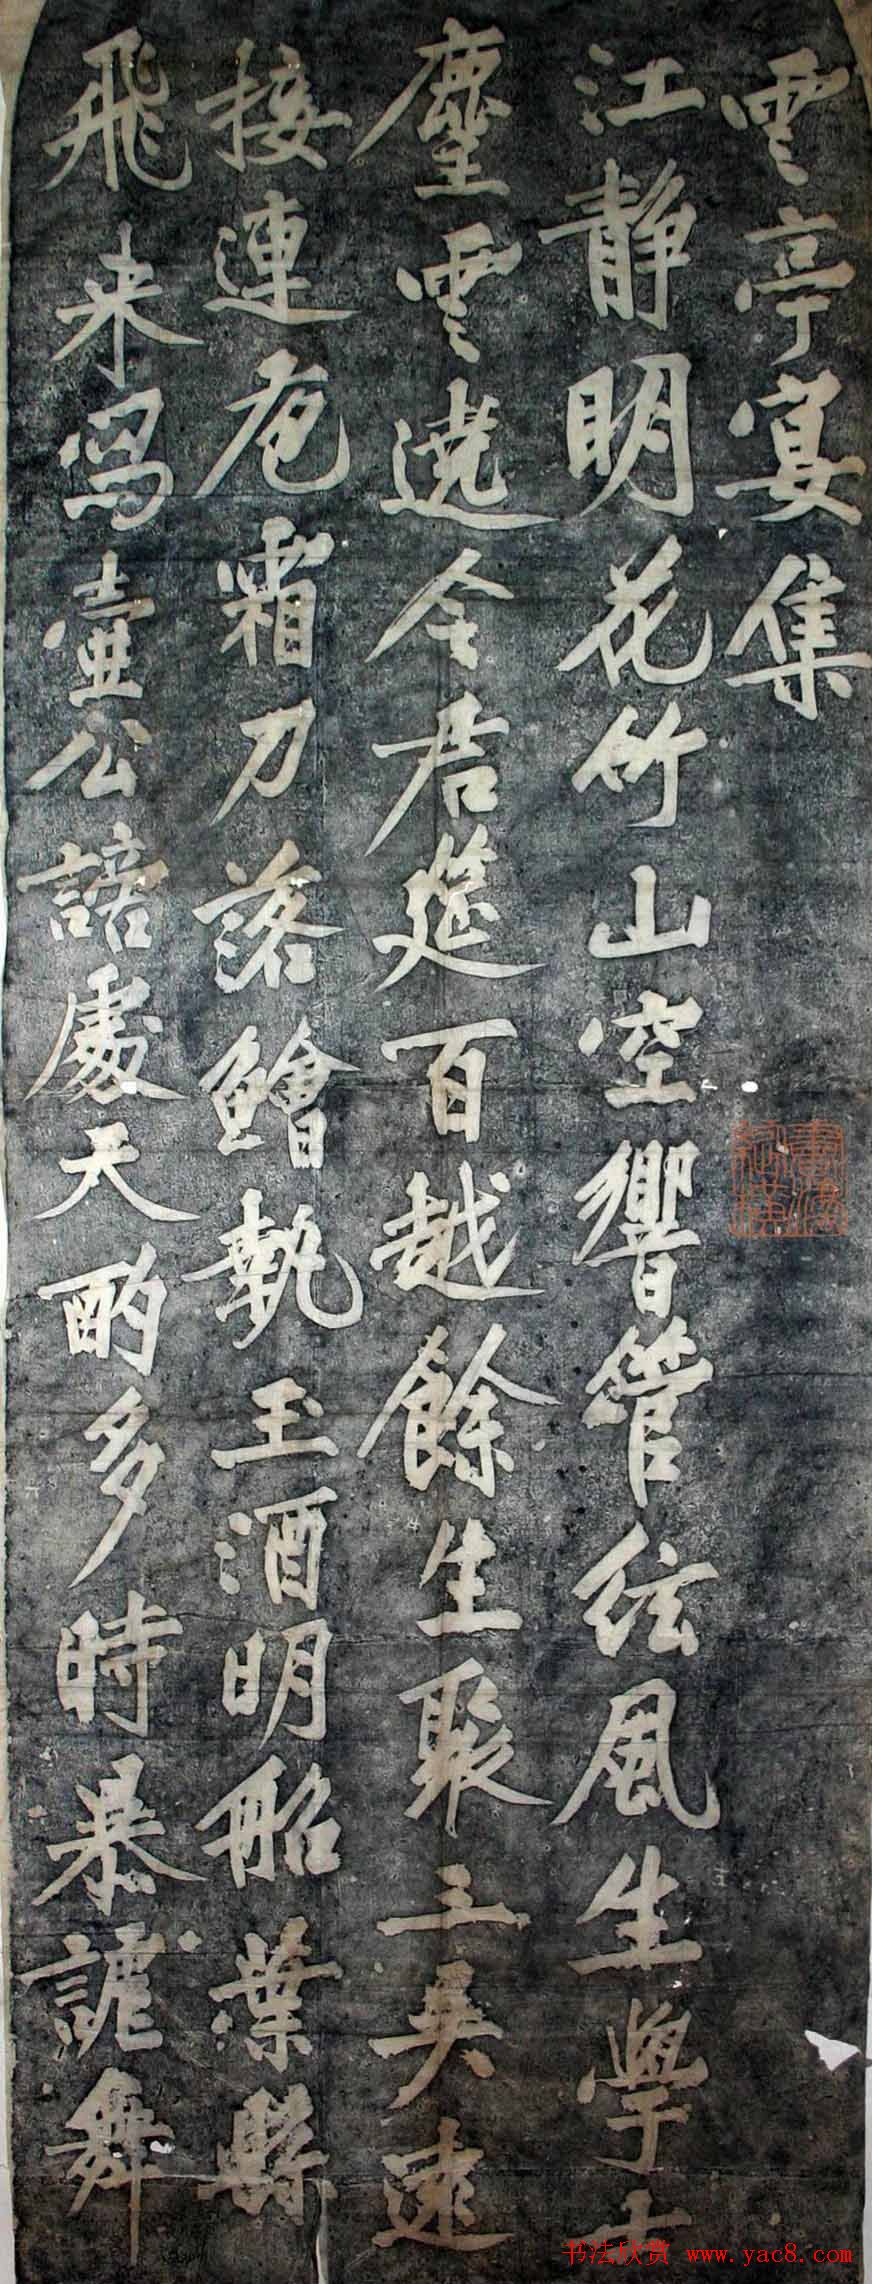 雲亭宴集
江静明花竹山空響管絃風生學士
麈雲遶令君筵百越餘生聚三吳遠
接連庖霜刀落鱠執玉酒明船葉縣
飛来舄壺公謫處天酌多時暴謔舞
书法欣赏 www.yac8.com